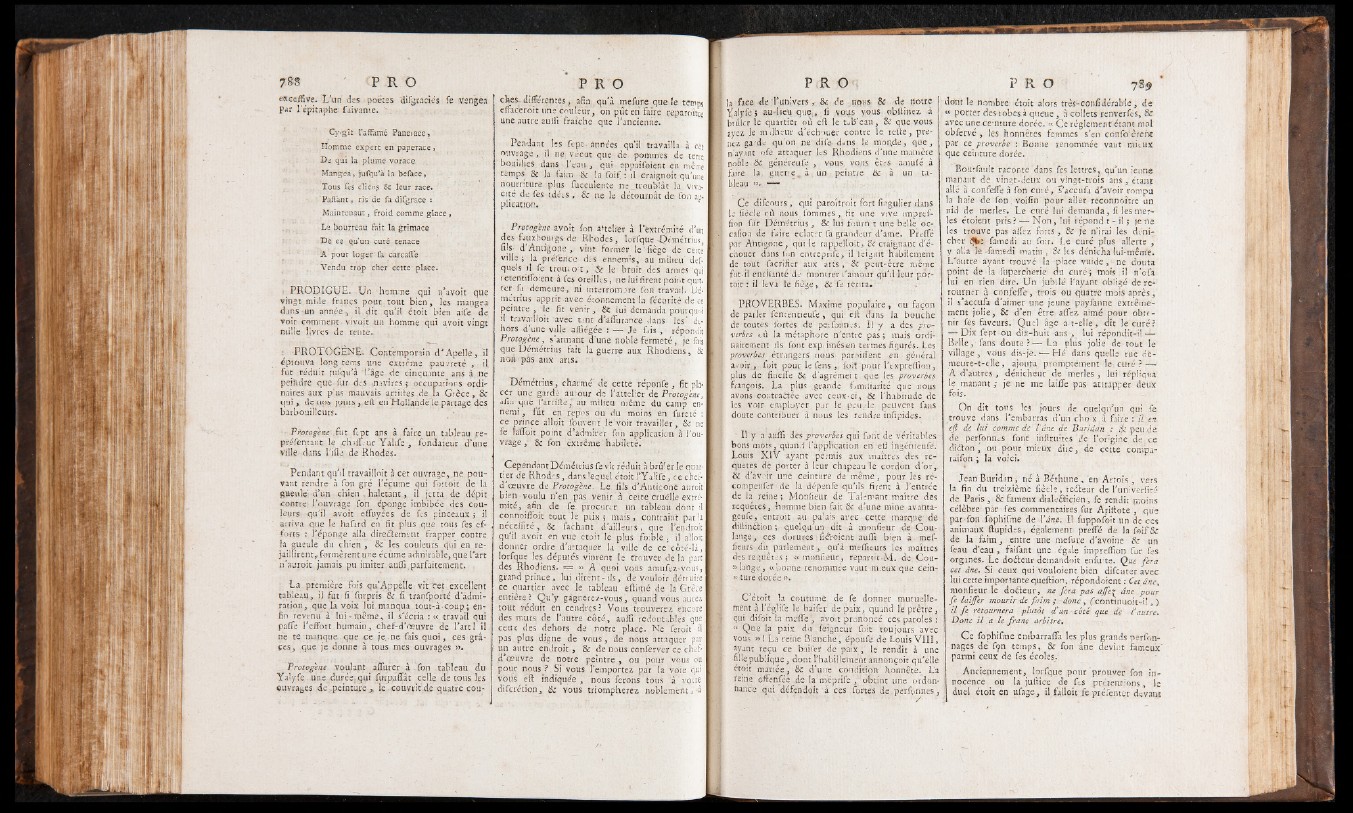 788 PRO
exceſſive. L'un des poètes diſgraciés ſe vengea
par l'épitaphe ſuivante.
Cy-gît l'affamé Pancrace,
Homme expert en paperace,
De qui la plume vorace
Mangea, juſqu'à la beſace,
Tous ſes cliens & leur race.
Paſſant, ris de ſa diſgrace :
Maintenant, froid comme glace,
Le bourreau fait la grimace
De ce qu'un curé tenace
A pour loger ſa carcaſſe
Vendu trop cher cette place.
PRODIGUE. Un homme qui n'avoit que
vingt mille francs pour tout bien, les mangea
dans un année, il dit qu'il étoit bien aiſe de
voir comment vivoit un homme qui avoit vingt
mille livres de rente.
PROTOGÈNE. Contemporain d'Apelle, il
éprouva long-tems une extrême pauvreté, il
fut réduit juſqu'à l'âge de cinquante ans à ne
peindre que ſur des navires ; occupations ordi-
naires aux plus mauvais artiſtes de la Grèce, &
qui, de nos jours, eſt en Hollande le partage des
barbouilleurs.
Protogène fut ſept ans à faire un tableau re-
préſentant le chaſſeur Yalife, fondateur d'une
ville dans l'iſle de Rhodes.
Pendant qu'il travailloit à cet ouvrage, ne pou-
vant rendre à ſon gré l'écume qui ſortoit de la
gueule d'un chien haletant, il jetta de dépit
contre l'ouvrage ſon éponge imbibée des cou-
leurs qu'il avoit eſſuyées de ſes pinceaux ; il
arriva que le haſard en fit plus que tous ſes ef-
forts : l'éponge alla directement frapper contre
la gueule du chien, & les couleurs qui en re-
jaillirent, formèrent une écume admirable, que l'art
n'auroit jamais pu imiter auſſi parfaitement.
La première fois qu'Appelle vit cet excellent
tableau, il fut ſi ſurpris & ſi tranſporté d'admi-
ration, que la voix lui manqua tout-à-coup ; en-
fin revenu à lui-même, il s'écria : « travail qui
paſſe l'effort humain, chef-d'œuvre de l'art ! il
ne te manque que ce je ne ſais quoi, ces grâ-
ces, que je donne à tous mes ouvrages ».
Protogène voulant aſſurer à ſon tableau du
Yalyſe une durée qui ſurpaſſât celle de tous les
ouvrages de peinture, le couvrit de quatre cou-
PRO
ches différentes, afin qu'à meſure que le temps
effaceroit une couleur, on pût en faire reparoître
une autre auſſi fraiche que l'ancienne.
Pendant les ſept années qu'il travailla à cet
ouvrage, il ne vécut que de pommes de terre
bouillies dans l'eau, qui appaiſoient en même
temps & la faim & la ſoif : il craignoit qu'une
nourriture plus ſucculente ne troublât la viva-
cité de ſes idées, & ne le détournât de ſon ap-
plication.
Protogène avoit ſon attelier à l'extrémité d'un
des fauxbourgs de Rhodes, lorſque Démétrius,
fils d'Antigone, vint former le ſiège de cette
ville ; la préſence des ennemis, au milieu deſ-
quels il ſe trouvoit, & le bruit des armes qui
retentiſſoient à ſes oreilles, ne lui firent point quit-
ter ſa demeure, ni interrompre ſon travail. Dé-
métrius apprit avec étonnement la ſécurité de ce
peintre, le fit venir, & lui demanda pourquoi
il travailloit avec tant d'aſſurance dans les de-
hors d'une ville aſſiégée : — Je ſais, répondit
Protogène, s'armant d'une noble fermeté, je ſais
que Démétrius fait la guerre aux Rhodiens, &
non pas aux arts.
Démétrius, charmé de cette réponſe, fit pla-
cer une garde autour de l'attelier de Protogène,
afin que l'artiſte, au milieu même du camp en-
nemi, fût en repos ou du moins en ſureté :
ce prince alloit ſouvent le voir travailler, & ne
ſe laſſoit point d'admirer ſon application à l'ou-
vrage, & ſon extrême habileté.
Cependant Démétrius ſe vit réduit à brûler le quar-
tier de Rhodes, dans lequel étoit l'Yalife, ce chef-
d'œuvre de Protogène. Le fils d'Antigone auroit
bien voulu n'en pas venir à cette cruelle extré-
mité, afin de ſe procurer un tableau dont il
connoiſſoit tout le prix ; mais, contraint par la
néceſſité, & ſachant d'ailleurs, que l'endroit
qu'il avoit en vue étoit le plus foible, il alloit
donner ordre d'attaquer la ville de ce côté-là,
lorſque les députés vinrent le trouver de la part
des Rhodiens. = « A quoi vous amuſez-vous,
grand prince, lui dirent-ils, de vouloir détruire
ce quartier avec le tableau eſtimé de la Grèce
entière ? Qu'y gagnerez-vous, quand vous aurez
tout réduit en cendres ? Vous trouverez encore
des murs de l'autre côté, auſſi redoutables que
ceux des dehors de notre place. Ne ſeroit il
pas plus digne de vous, de nous attaquer par
un autre endroit, & de nous conſerver ce chef-
d'œuvre de notre peintre, ou pour vous ou
pour nous ? Si vous l'emportez par la voie qui
vous eſt indiquée, nous ſerons tous à votre
diſcrétion, & vous triompherez noblement à
PRO
la face de l'univers, & de nous & de notre
Yalyſe ; au-lieu que, ſi vous vous obſtinez à
brûler le quartier où eſt le tableau, & que vous
ayez le malheur d'échouer contre le reſte, pre-
nez garde qu'on ne diſe dans le monde, que,
n'ayant oſé attaquer les Rhodiens d'une manière
noble & généreuſe, vous vous êtes amuſé à
faire la guerre à un peintre & à un ta-
bleau ». —
Ce diſcours, qui paroîtroit fort ſingulier dans
le ſiècle où nous ſommes, fit une vive impreſ-
ſion ſur Démétrius, & lui fournit une belle oc-
caſion de faire éclater ſa grandeur d'ame. Preſſé
par Antigone, qui le rappelloit, & craignant d'é-
chouer dans ſon entrepriſe, il feignit habilement
de tout ſacrifier aux arts, & peut-être même
fut il enchanté de montrer l'amour qu'il leur por-
toit : il leva le ſiège, & ſe retira.
PROVERBES. Maxime populaire, ou façon
de parler ſentencieuſe, qui eſt dans la bouche
de toutes ſortes de perſonnes. Il y a des pro-
verbes où la métaphore n'entre pas ; mais ordi-
nairement ils ſont exprimés en termes figurés. Les
proverbes étrangers nous paroiſſent en général
avoir, ſoit pour le ſens, ſoit pour l'expreſſion,
plus de fineſſe & d'agrément que les proverbes
françois. La plus grande familiarité que nous
avons contractée avec ceux-ci, & l'habitude de
les voir employer par le peuple peuvent ſans
doute contribuer à nous les rendre inſipides.
Il y a auſſi des proverbes qui ſont de véritables
bons mots, quand l'application en eſt ingénieuſe.
Louis XIV ayant permis aux maîtres des re-
quetes de porter à leur chapeau le cordon d'or,
& d'avoir une ceinture de même, pour les re-
compenſer de la dépenſe qu'ils firent à l'entrée
de la reine ; Monſieur de Talemant maître des
requêtes, homme bien fait & d'une mine avanta-
geuſe, entroit au palais avec cette marque de
diſtinction ; quelqu'un dit à monſieur de Cou-
lange, ces dorures ſiéroient auſſi bien à meſ-
ſieurs du parlement, qu'à meſſieurs les maîtres
des requêtes ; « monſieur, repartit M. de Cou-
» lange, « bonne renommée vaut mieux que cein-
» ture dorée ».
C'étoit la coutume de ſe donner mutuelle-
ment à l'égliſe le baiſer de paix, quand le prêtre,
qui diſoit la meſſe, avoit prononcé ces paroles :
« Que la paix du ſeigneur ſoit toujours avec
vous » ! La reine Blanche, épouſe de Louis VIII,
ayant reçu ce baiſer de paix, le rendit à une
fille publique, dont l'habillement annonçoit qu'elle
étoit mariée, & d'une condition honnête. La
reine offenſée de la mépriſe, obtint une ordon-
nance qui défendoit à ces ſortes de perſonnes,
PRO 789
dont le nombre étoit alors très-conſidérable, de
« porter des robes à queue, à collets renverſés, &
avec une ceinture dorée. » Ce réglement étant mal
obſervé, les honnêtes femmes s'en conſolèrent
par ce proverbe : Bonne renommée vaut mieux
que ceinture dorée.
Bourſault raconte dans ſes lettres, qu'un jeune
manant de vingt-deux ou vingt-trois ans, étant
allé à confeſſe à ſon curé, s'accuſa d'avoir rompu
la haie de ſon voiſin pour aller reconnoître un
nid de merles. Le curé lui demanda, ſi les mer-
les étoient pris ? — Non, lui répondit-il ; je ne
les trouve pas aſſez forts, & je n'irai les déni-
cher que ſamedi au ſoir. Le curé plus allerte,
y alla le ſamedi matin, & les dénicha lui-même.
L'autre ayant trouvé la place vuide, ne douta
point de la ſupercherie du curé ; mois il n'oſa
lui en rien dire. Un jubilé l'ayant obligé de re-
tourner à confeſſe, trois ou quatre mois après,
il s'accuſa d'aimer une jeune payſanne extrême-
ment jolie, & d'en être aſſez aimé pour obte-
nir ſes faveurs. Quel âge a-t-elle, dit le curé ?
— Dix ſept ou dix-huit ans, lui répondit-il —
Belle, ſans doute ? — La plus jolie de tout le
village, vous dis-je. — Hé dans quelle rue de-
meure-t-elle, ajouta promptement le curé ? —
A d'autres, dénicheur de merles, lui répliqua
le manant ; je ne me laiſſe pas attrapper deux
fois.
On dit tous les jours de quelqu'un qui ſe
trouve dans l'embarras d'un choix à faire : il en
eſt de lui comme de l'âne de Buridan : & peu de
de perſonnes ſont inſtruites de l'origine de ce
dicton, ou pour mieux dire, de cette compa-
raiſon ; la voici.
Jean Buridan, né à Béthune, en Artois, vers
la fin du treizième ſiècle, recteur de l'univerſité
de Paris, & fameux dialecticien, ſe rendit moins
célèbre par ſes commentaires ſur Ariſtote, que
par ſon ſophiſme de l'âne. Il ſuppoſoit un de ces
animaux ſtupides, également preſſé de la ſoif &
de la faim, entre une meſure d'avoine & un
ſeau d'eau, faiſant une égale impreſſion ſur ſes
organes. Le docteur demandoit enſuite. Que fera
cet âne. Si ceux qui vouloient bien diſcuter avec
lui cette importante queſtion, répondoient : Cet âne,
monſieur le docteur, ne ſera pas aſſez âne pour
ſe laiſſer mourir de faim ; donc, (continuoit-il,)
il ſe retournera plutôt d'un côté que de l'autre.
Donc il a le franc arbitre.
Ce ſophiſme embarraſſa les plus grands perſon-
nages de ſon temps, & ſon âne devint fameux
parmi ceux de ſes écoles.
Anciennement, lorſque pour prouver ſon in-
nocence ou la juſtice de ſes prétentions, le
duel étoit en uſage, il falloit ſe préſenter devant